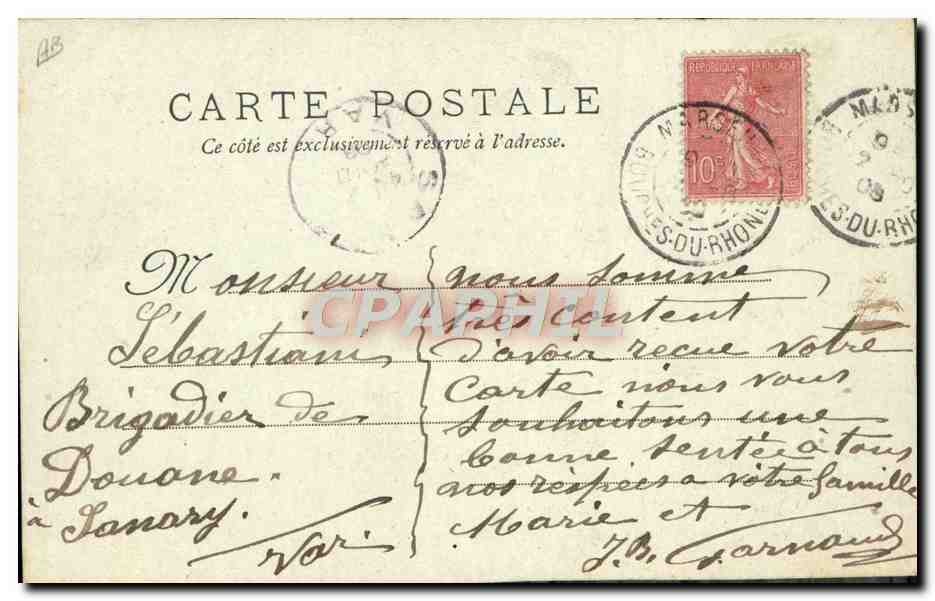 AB
CARTE POSTALE
Ce côté est exclusivement réservé à l'adresse.
REPUBLIQUE FRANÇAISE
10c
MARSEI
BOUCHES-DU-RHONE
MARS
HES-DU-RHO
VAR
CPAPHIL
Monsieur
Sébastiani
Brigadier de
Douane.
à Sanary.
Var.
nous somme
très content
d'avoir recue votre
carte nous vous
souhaitons une
bonne sentée à tous
nos réspées a votre famille
Marie et
J.B. Garnaud